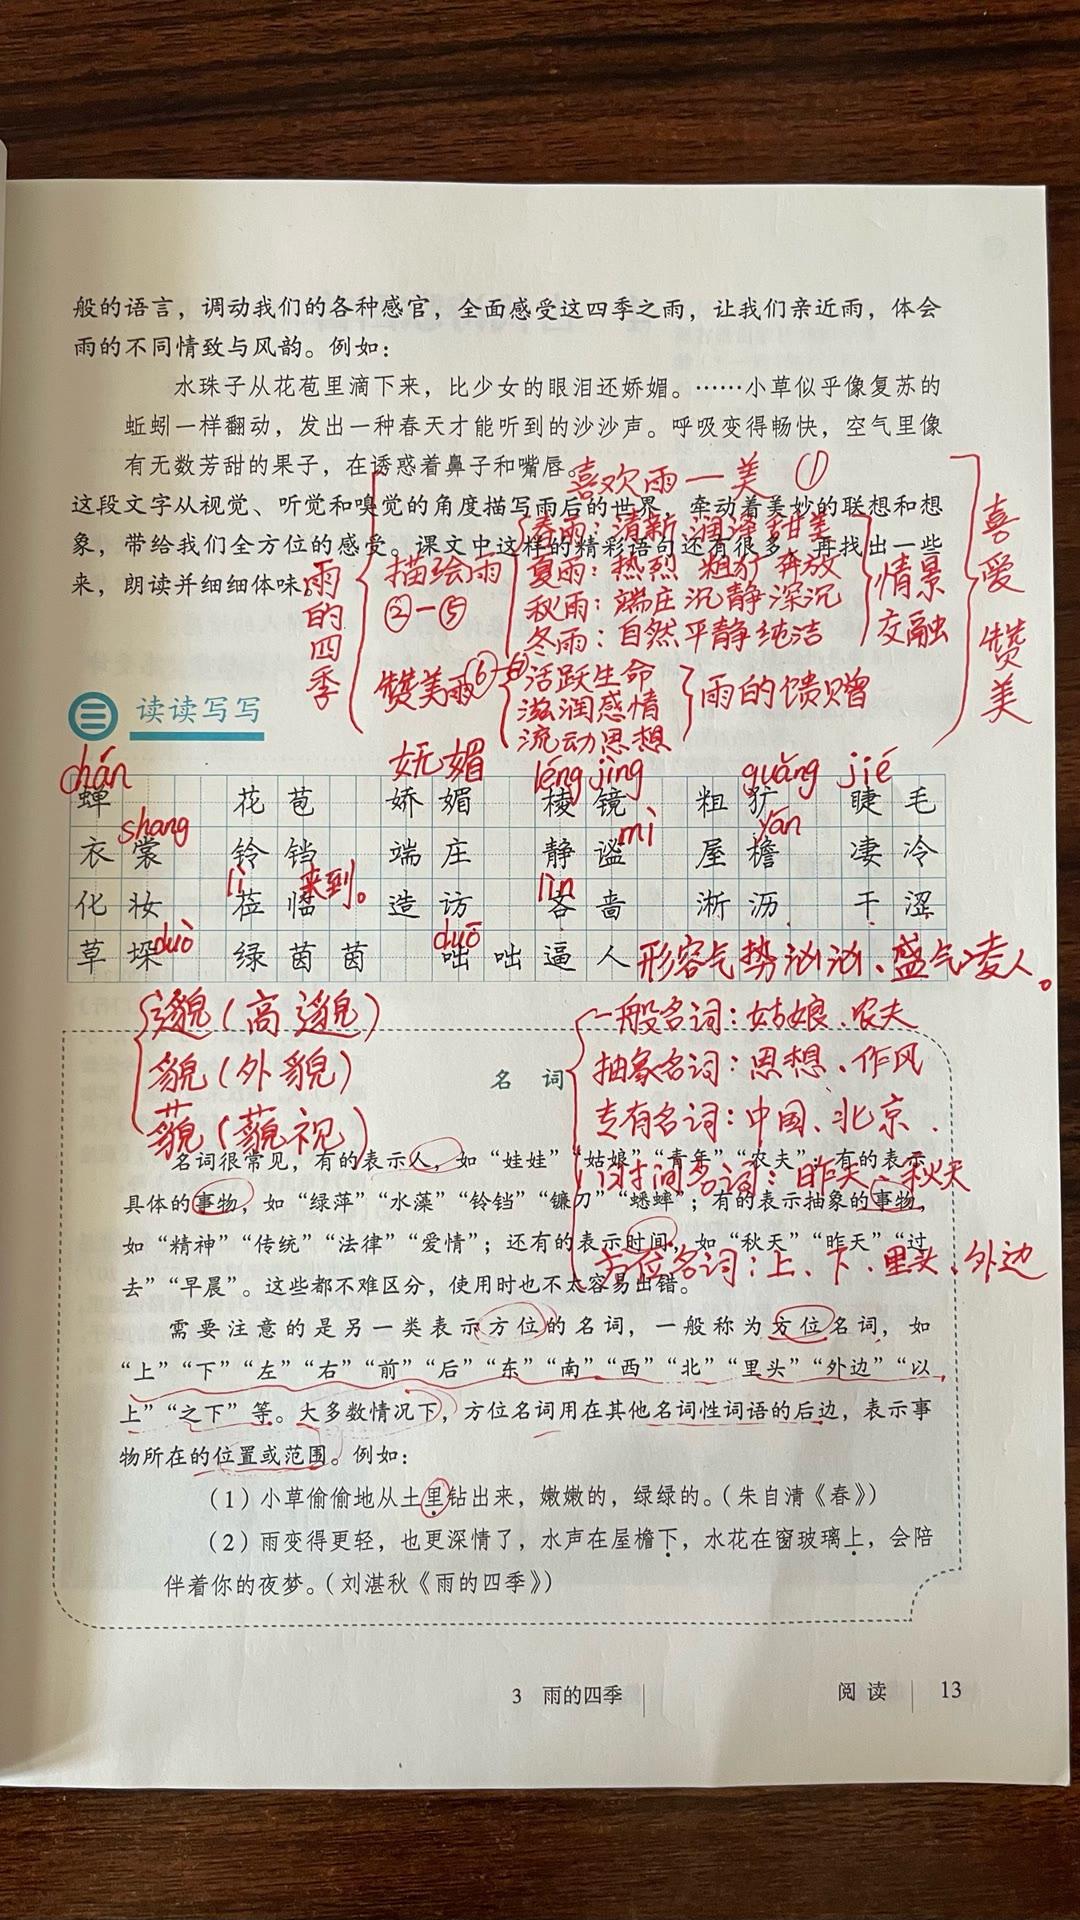 般的语言，调动我们的各种感官，全面感受这四季之雨，让我们亲近雨，体会
雨的不同情致与风韵。例如：
水珠子从花苞里滴下来，比少女的眼泪还娇媚。……小草似乎像复苏的
蚯蚓一样翻动，发出一种春天才能听到的沙沙声。呼吸变得畅快，空气里像
有无数芳甜的果子，在诱惑着鼻子和嘴唇。
这段文字从视觉、听觉和嗅觉的角度描写雨后的世界，牵动着美妙的联想和想
象，带给我们全方位的感受。课文中这样的精彩语句还有很多，再找出一些
来，朗读并细细体味。
雨的四季
喜欢雨一美 ①
描绘雨
②－⑤
春雨：清新 润泽 甜美
夏雨：热烈 粗犷 奔放
秋雨：端庄 沉静 深沉
冬雨：自然 平静 纯洁
情景
交融
赞美雨
活跃生命
滋润感情
流动思想
雨的馈赠
喜爱赞美
三 读读写写
妩媚
chán léng jìng guǎng jié
蝉 花苞 娇媚 棱镜 粗犷 睫毛
shang mì yán
衣裳 铃铛 端庄 静谧 屋檐 凄冷
lì 来到。 lìn
化妆 莅临 造访 吝啬 淅沥 干涩
duò duō
草垛 绿茵茵 咄咄逼人 形容气势汹汹、盛气凌人。
邈（高邈）
貌（外貌）
藐（藐视）
名 词
一般名词：姑娘、农夫
抽象名词：思想、作风
专有名词：中国、北京.
时间名词：昨天、秋天
方位名词：上、下、里头、外边
名词很常见，有的表示人，如“娃娃”“姑娘”“青年”“农夫”；有的表示
具体的事物，如“绿萍”“水藻”“铃铛”“镰刀”“蟋蟀”；有的表示抽象的事物，
如“精神”“传统”“法律”“爱情”；还有的表示时间，如“秋天”“昨天”“过
去”“早晨”。这些都不难区分，使用时也不太容易出错。
需要注意的是另一类表示方位的名词，一般称为方位名词，如
“上”“下”“左”“右”“前”“后”“东”“南”“西”“北”“里头”“外边”“以
上”“之下”等。大多数情况下，方位名词用在其他名词性词语的后边，表示事
物所在的位置或范围。例如：
（1）小草偷偷地从土里钻出来，嫩嫩的，绿绿的。（朱自清《春》）
（2）雨变得更轻，也更深情了，水声在屋檐下，水花在窗玻璃上，会陪
伴着你的夜梦。（刘湛秋《雨的四季》）
3 雨的四季 阅读 13